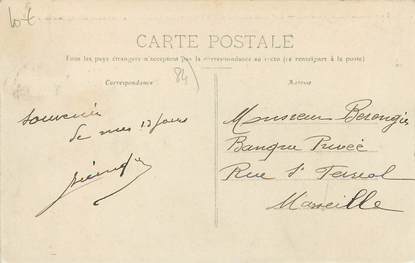 10€
CARTE POSTALE
Tous les pays étrangers n'acceptent pas la correspondance au recto (se renseigner à la poste)
Correspondance
84
Adresse
Souvenir
de mes 13 jours
Monsieur Berengier
Banque Privée
Rue St Ferréol
Marseille